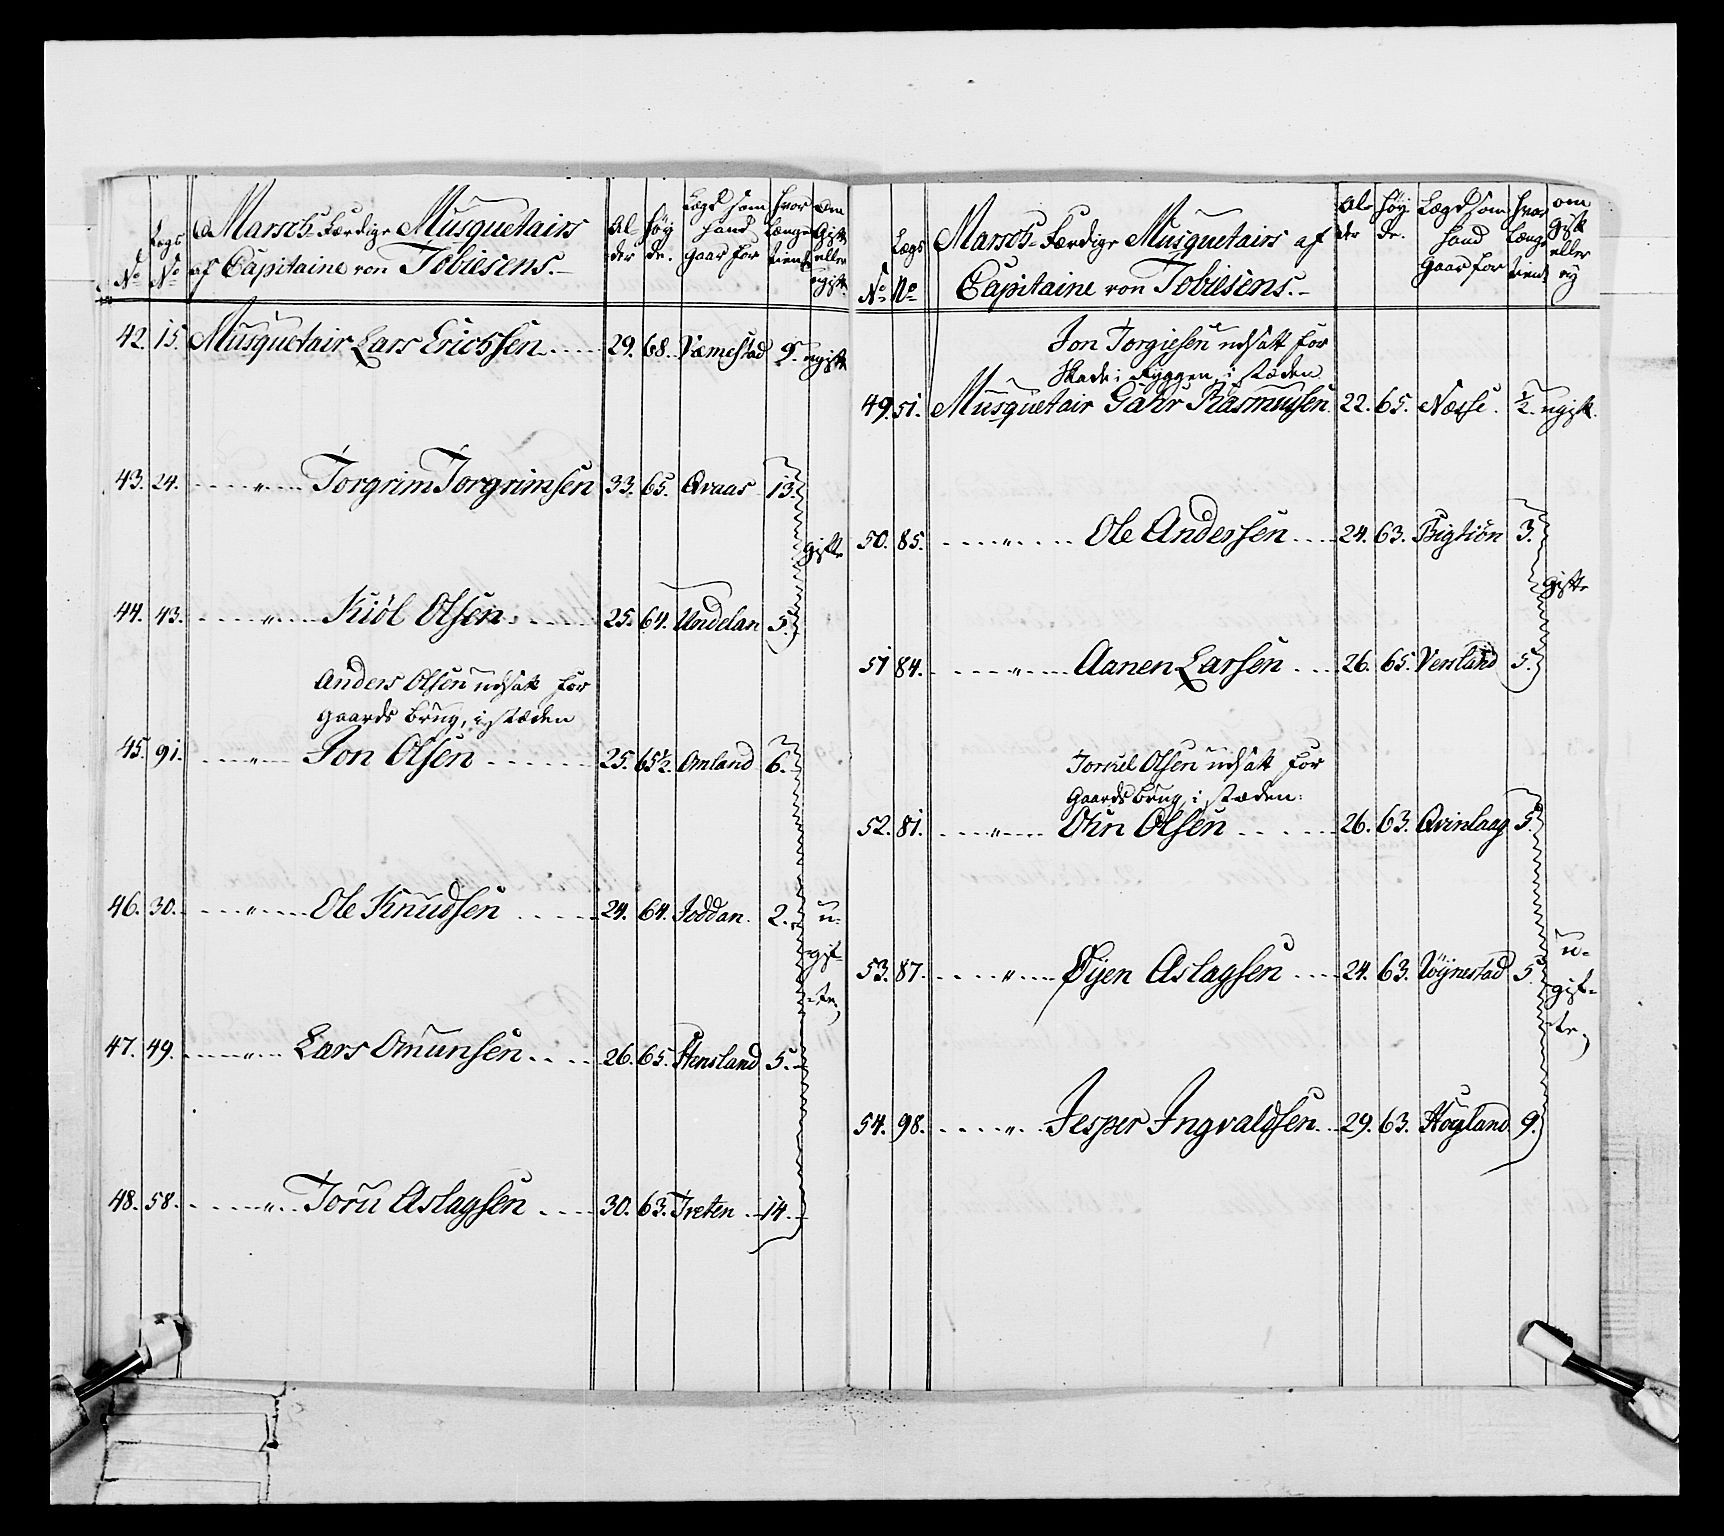 No
Legs No
Marsch-Færdige Musquetairs
af Capitaine von Tobiesens.
Al-
der
Høy
de.
Legd som
hand
gaar for
hvor
længe
tient
om
gift
eller
ugift
42. 15. Musquetair Lars Erichsen 29. 68. Væmestad 9. ugift
43. 24. " Torgrim Torgrimsen 33. 65. Qvaas 13.
gifte
44. 43. " Kiöl Olsen 25. 64. Undelan 5.
Anders Olsen udsatt for
gaards brug, i stæden
45. 91. " Jon Olsen 25. 65½. Omland 6.
46. 30. " Ole Knudsen 24. 64. Joddan. 2.
u-
gif-
te,
47. 49. " Lars Omunsen 26. 65. Stensland 5.
48. 58. " Toru Aslagsen 30. 63. Treten 14.
No
Legs No
Marsch-Færdige Musquetairs af
Capitaine von Tobiesens.
Al-
der
Høy
de.
Lægd som
hand
gaar for
hvor
længe
tient
om
gift
eller
ey
Jon Torgiesen udsatt for
Skade i Ryggen, i stæden
49. 51. Musquetair Gahr Rasmusen 22. 65. Næsse. ½. ugift.
50. 85. " Ole Anderssen 24. 63. Bigtiön 3.
gifte
51 84. " Aanen Larsen 26. 65. Versland 5.
Torkel Olsen udsatt for
Gaards brug, i stæden:
52. 81. " Ohn Olsen 26. 63. Qvinlaag 5.
53. 87. " Öÿen Aslagsen 24. 63. Vöÿnestad 5.
u-
gif-
te,
54. 98. " Jesper Ingvaldsen 29. 63. Höyland 9.